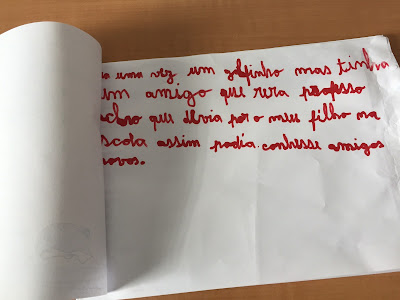 a uma vez um golfinho mas tinha
um amigo que rera professo
acho que devia por o meu filho na
scola assim podia conhesse amigos
novos.